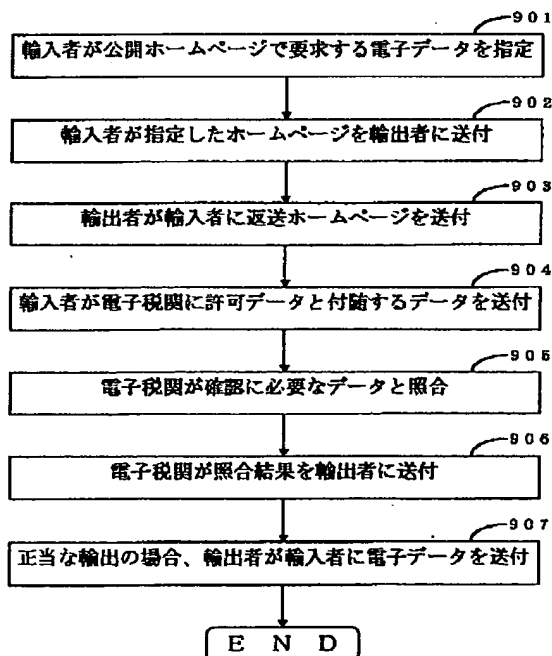 901
輸入者が公開ホームページで要求する電子データを指定
902
輸入者が指定したホームページを輸出者に送付
903
輸出者が輸入者に返送ホームページを送付
904
輸入者が電子税関に許可データと付随するデータを送付
905
電子税関が確認に必要なデータと照合
906
電子税関が照合結果を輸出者に送付
907
正当な輸出の場合、輸出者が輸入者に電子データを送付
END